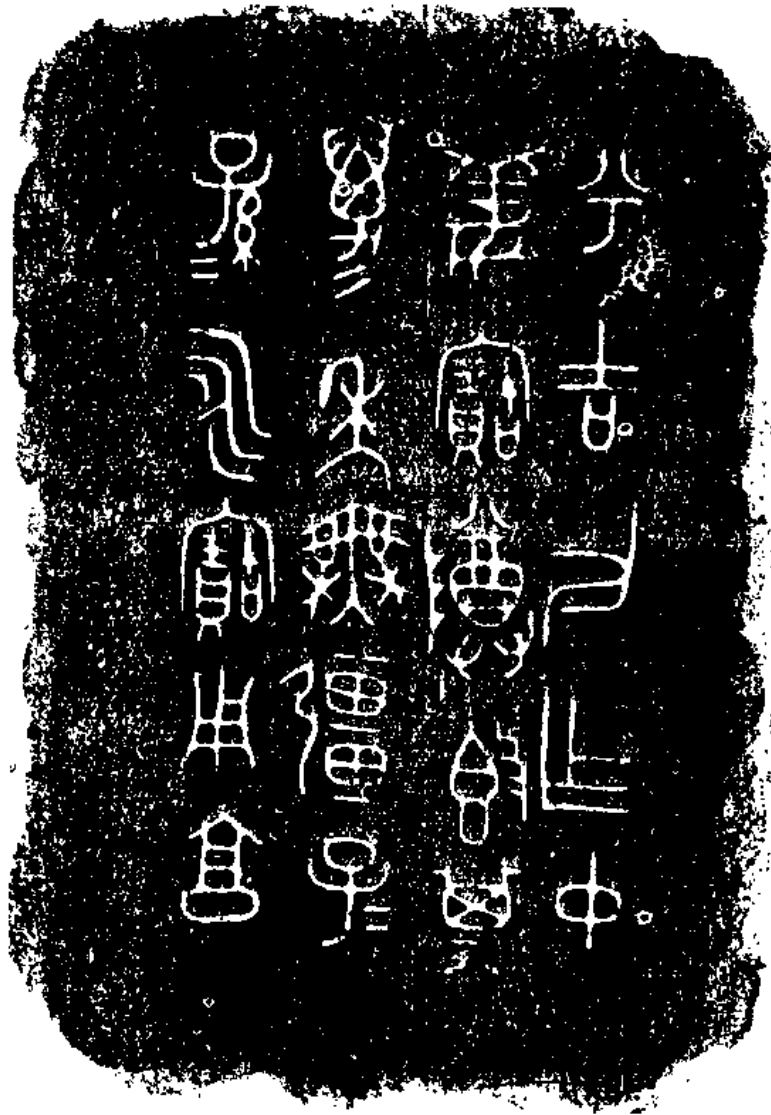 兮吉父乍中
姜寶尊𣪘其
萬年無疆子＝
孫＝永寶用享